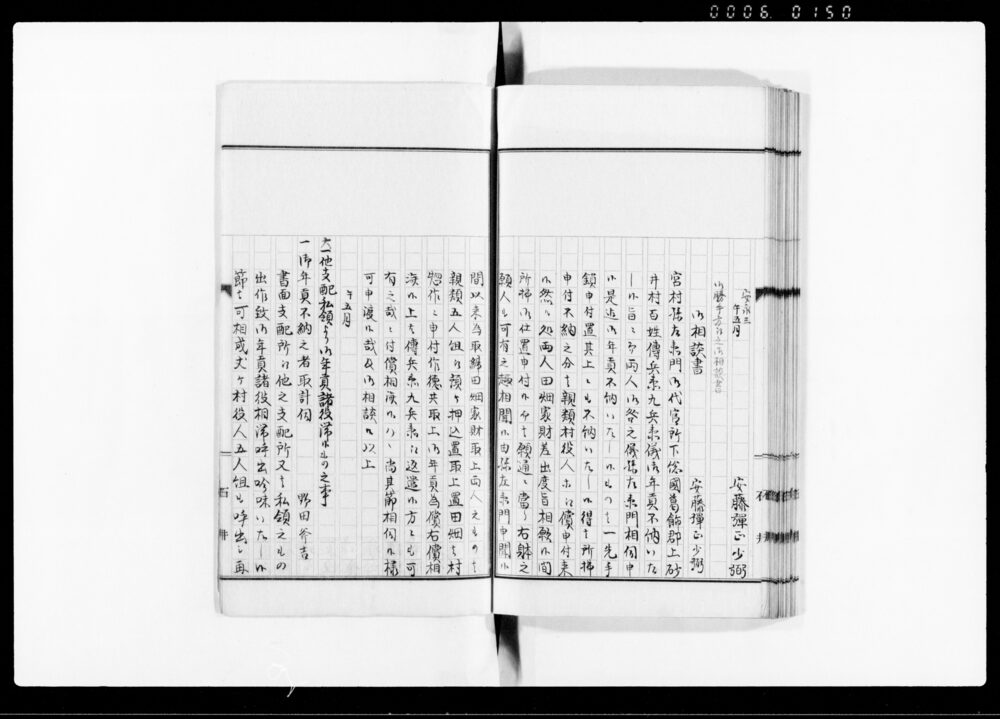 0006. 0150
安永三
午五月
安藤彈正少弼
御勝手方江之御相談書
御相談書
安藤彈正少弼
宮村孫左衛門御代官所下総國葛飾郡上砂
井村百姓傳兵衛九兵衛儀御年貢不納いた
し候旨ニ而両人御咎之儀孫左衛門相伺申
候是迄御年貢不納いたし候もの者一先手
鎖申付置其上ニも不納いたし候得者所拂
申付不納之分者親類村役人共江償申付来
候然ル処両人田畑家財差出度旨相願候間
所拂御仕置申付候而者願通ニ當り右躰之
願人も可有之趣相聞候由孫左衛門申聞候
間以来為取締田畑家財取上両人之もの者
親類五人組江預ケ押込置取上置田畑者村
惣作ニ申付作徳共取上御年貢為償右償相
済候上者傳兵衛九兵衛江返遣候方ニも可
有之哉ニ付償相済候ハヽ尚其節相伺候様
可申渡候哉及御相談候以上
午五月
六一他支配私領より御年貢諸役滞候もの之事
一御年貢不納之者取計伺
野田弥吉
書面支配所江他之支配所又者私領之もの
出作致御年貢諸役相滞呼出吟味いたし候
節者可相成丈ケ村役人五人組も呼出シ再
石井
石井